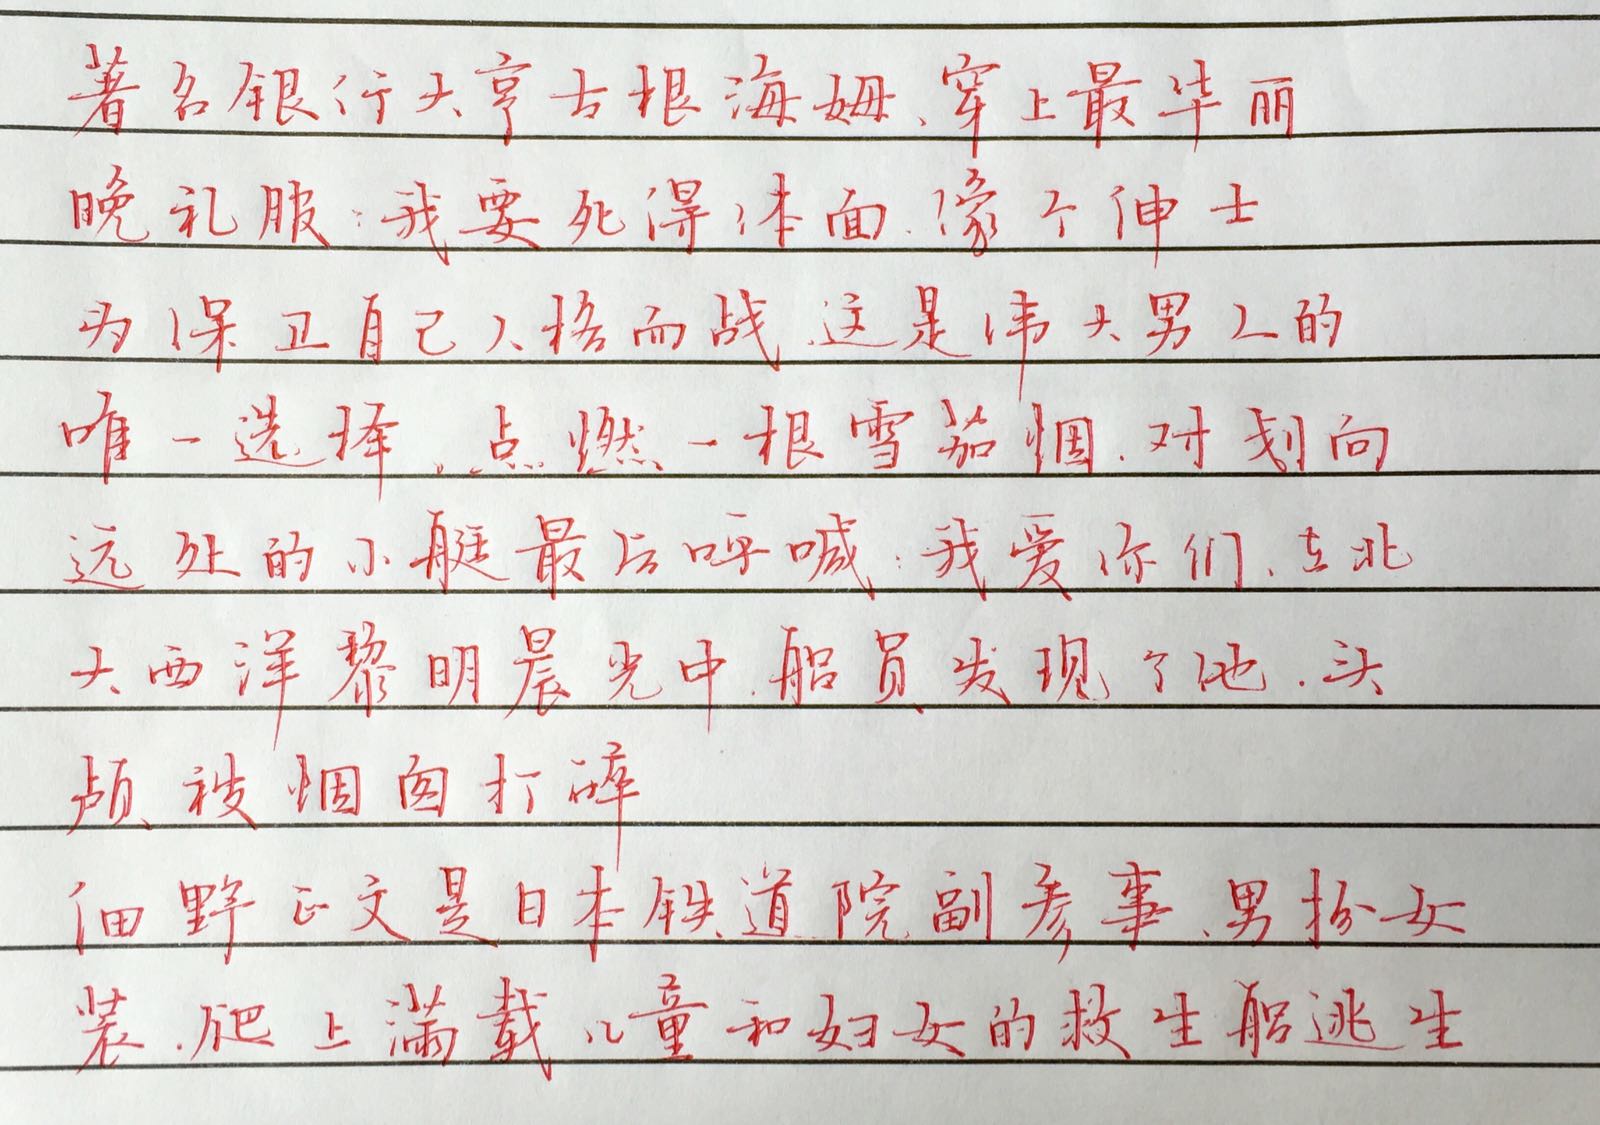 著名银行大亨古根海姆、穿上最华丽
晚礼服:我要死得体面.像个伸士
为保卫自己人格而战.这是伟大男人的
唯一选择、点燃一根雪茄烟.对划向
远处的小艇最后呼喊:我爱你们、在北
大西洋黎明晨光中.船员发现了他.头
颅被烟囱打碎
细野正文是日本铁道院副参事、男扮女
装.爬上满载儿童和妇女的救生船逃生